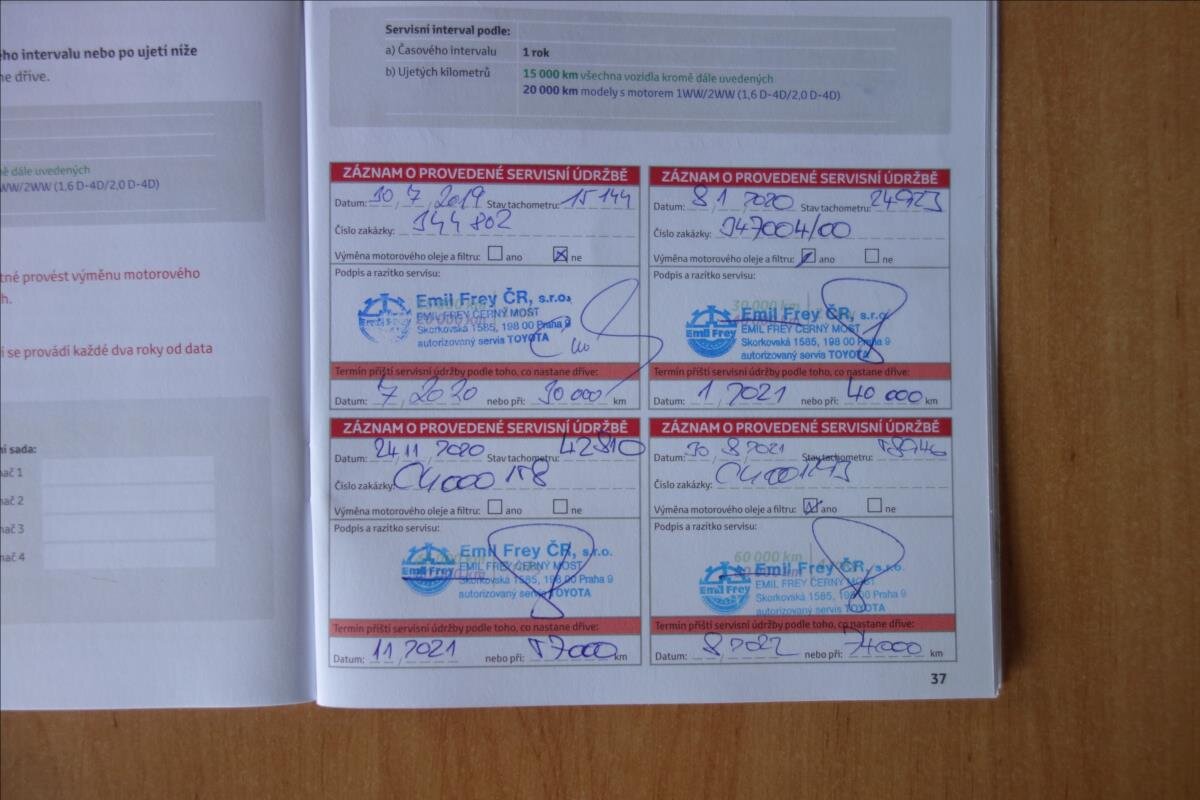 ého intervalu nebo po ujetí níže
ne dříve.
ně dále uvedených
WW/2WW (1,6 D-4D/2,0 D-4D)
tné provést výměnu motorového
h.
i se provádí každé dva roky od data
ní sada:
nač 1
nač 2
nač 3
nač 4
Servisní interval podle:
a) Časového intervalu 1 rok
b) Ujetých kilometrů 15 000 km všechna vozidla kromě dále uvedených
20 000 km modely s motorem 1WW/2WW (1,6 D-4D/2,0 D-4D)
ZÁZNAM O PROVEDENÉ SERVISNÍ ÚDRŽBĚ
Datum: 30 / 7 / 2019 Stav tachometru: 15 144
Číslo zakázky: 344 802
Výměna motorového oleje a filtru: ano ne
Podpis a razítko servisu:
Emil Frey ČR, s.r.o.
EMIL FREY ČERNÝ MOST
Skorkovská 1585, 198 00 Praha 9
autorizovaný servis TOYOTA
Termín příští servisní údržby podle toho, co nastane dříve:
Datum: 7 / 2020 nebo při: 30 000 km
ZÁZNAM O PROVEDENÉ SERVISNÍ ÚDRŽBĚ
Datum: 8 / 1 / 2020 Stav tachometru: 24923
Číslo zakázky: 347004/00
Výměna motorového oleje a filtru: ano ne
Podpis a razítko servisu:
30 000 km
Emil Frey ČR, s.r.o.
Emil Frey
EMIL FREY ČERNÝ MOST
Skorkovská 1585, 198 00 Praha 9
autorizovaný servis TOYOTA
Termín příští servisní údržby podle toho, co nastane dříve:
Datum: 1 / 2021 nebo při: 40 000 km
ZÁZNAM O PROVEDENÉ SERVISNÍ ÚDRŽBĚ
Datum: 24 / 11 / 2020 Stav tachometru: 42810
Číslo zakázky: 04000158
Výměna motorového oleje a filtru: ano ne
Podpis a razítko servisu:
Emil Frey ČR, s.r.o.
Emil Frey
EMIL FREY ČERNÝ MOST
Skorkovská 1585, 198 00 Praha 9
autorizovaný servis TOYOTA
Termín příští servisní údržby podle toho, co nastane dříve:
Datum: 11 / 2021 nebo při: 57000 km
ZÁZNAM O PROVEDENÉ SERVISNÍ ÚDRŽBĚ
Datum: 30 / 8 / 2021 Stav tachometru: 58946
Číslo zakázky:
Výměna motorového oleje a filtru: ano ne
Podpis a razítko servisu:
60 000 km
Emil Frey ČR, s.r.o.
Emil Frey
EMIL FREY ČERNÝ MOST
Skorkovská 1585, 198 00 Praha 9
autorizovaný servis TOYOTA
Termín příští servisní údržby podle toho, co nastane dříve:
Datum: 8 / 2022 nebo při: 74000 km
37